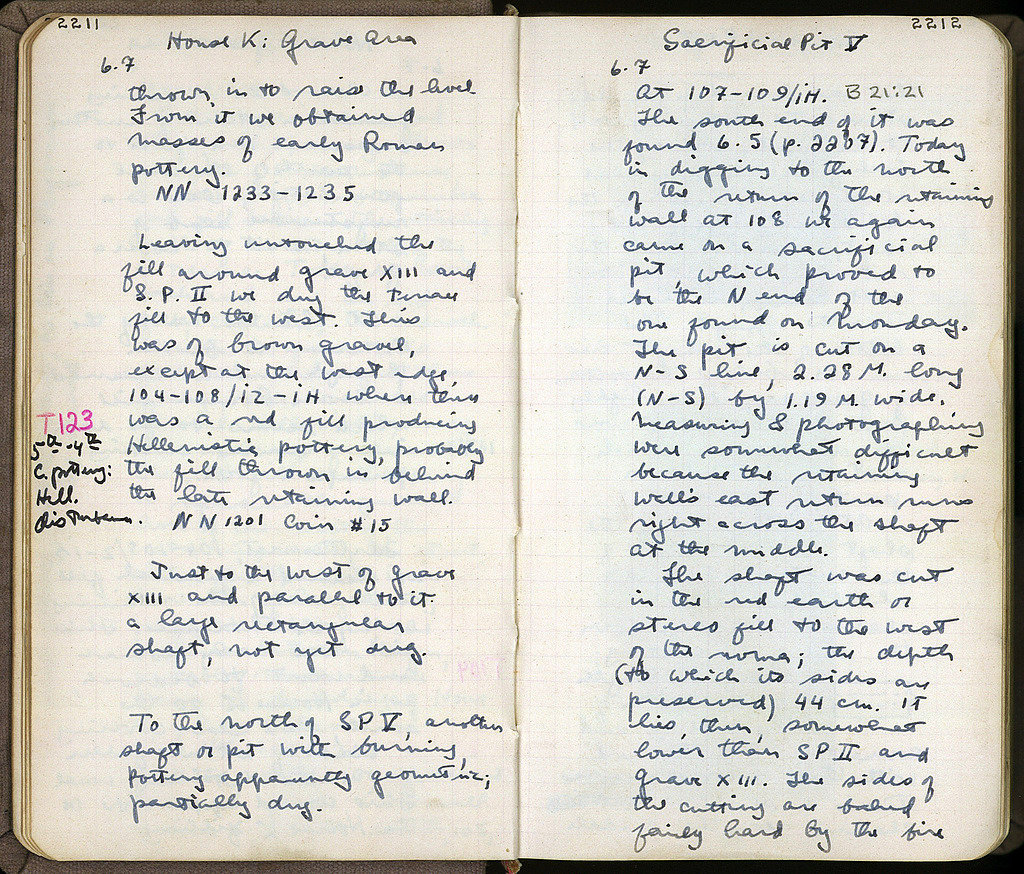 2211
House K: Grave Area
6.7
thrown in to raise the level
From it we obtained
masses of early Roman
pottery.
NN 1233-1235
Leaving untouched the
fill around grave XIII and
S.P. II we dug the terrace
fill to the west. This
was of brown gravel,
except at the west edge,
104-108/iZ-iH where there
was a red fill producing
Hellenistic pottery, probably
the fill thrown in behind
the late retaining wall.
NN 1201 Coin #15
T123
5th-4th
C. pottery:
Hell.
disturbance.
Just to the west of grave
XIII and parallel to it
a large rectangular
shaft, not yet dug.
To the north of SP V, another
shaft or pit with burning,
pottery apparently geometric;
partially dug.
2212
Sacrificial Pit V
6.7
At 107-109/iH. B 21:21
The south end of it was
found 6.5 (p. 2207). Today
in digging to the north
of the return of the retaining
wall at 108 we again
came on a sacrificial
pit, which proved to
be the N end of the
one found on Monday.
The pit is cut on a
N-S line, 2.28 M. long
(N-S) by 1.19 M. wide.
Measuring & photographing
were somewhat difficult
because the retaining
wall's east return runs
right across the shaft
at the middle.
The shaft was cut
in the red earth or
stereo fill to the west
of the noma; the depth
(to which its sides are
preserved) 44 cm. It
lies, then, somewhat
lower than SP II and
grave XIII. The sides of
the cutting are baked
fairly hard by the fire